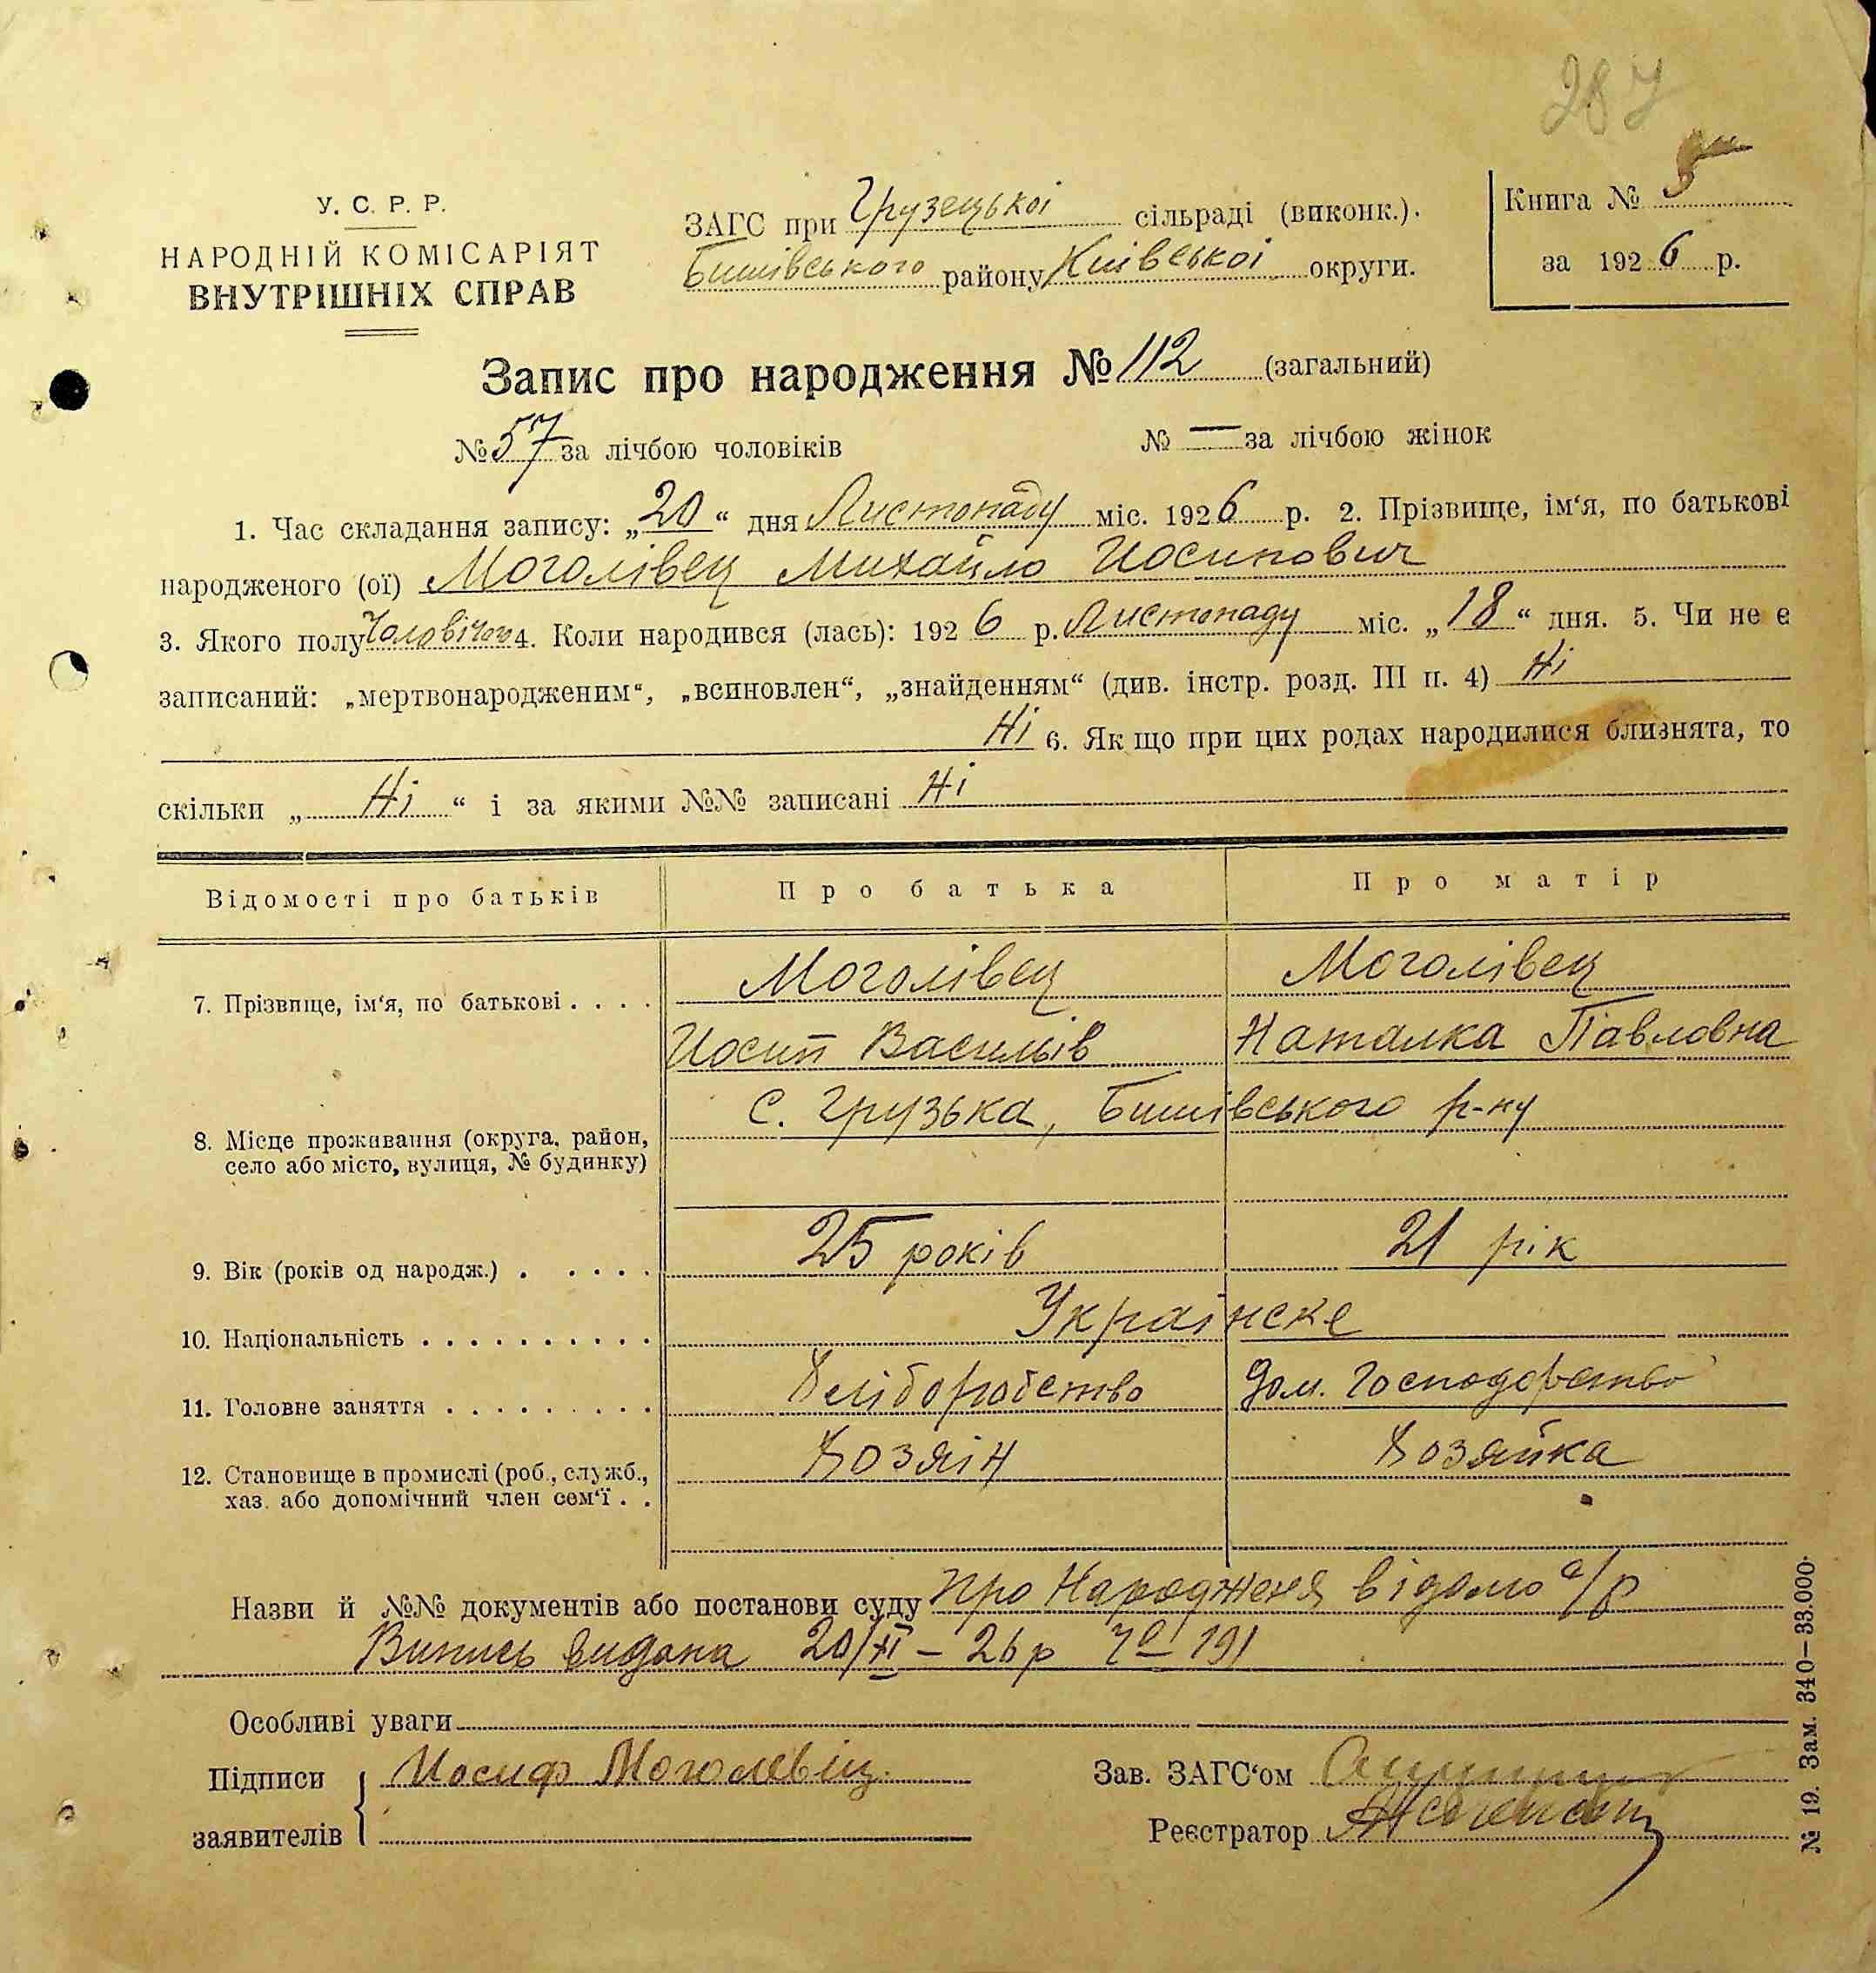 287
У. С. Р. Р.
НАРОДНІЙ КОМІСАРІЯТ
ВНУТРІШНІХ СПРАВ
ЗАГС при Грузецької сільраді (виконк.).
Бишівського району Київської округи.
Книга № 5
за 1926 р.
Запис про народження № 112 (загальний)
№ 57 за лічбою чоловіків № — за лічбою жінок
1. Час складання запису: „20“ дня Листопаду міс. 1926 р. 2. Прізвище, ім‘я, по батькові
народженого (ої) Моголівец Михайло Иосипович
3. Якого полу Чоловічого 4. Коли народився (лась): 1926 р. Листопаду міс. „18“ дня. 5. Чи не є
записаний: „мертвонародженим“, „всиновлен“, „знайденням“ (див. інстр. розд. III п. 4) Ні
Ні 6. Як що при цих родах народилися близнята, то
скільки „Ні“ і за якими №№ записані Ні
Відомості про батьків Про батька Про матір
7. Прізвище, ім‘я, по батькові . . . . Моголівец Моголівец
Иосип Васильів Наталка Павловна
8. Місце проживання (округа, район, село або місто, вулиця, № будинку) с. Грузька, Бишівського р-ну
9. Вік (років од народж.) . . . . . 25 років 21 рік
10. Національність . . . . . . . . . . Українске
11. Головне заняття . . . . . . . . . Хліборобство Дом. Господорство
12. Становище в промислі (роб., служб., хаз. або допомічний член сем‘ї . . Хозяін Хозяйка
Назви й №№ документів або постанови суду про Народженя відомо с/р
Випись видана 20/XI – 26 р 191
Особливі уваги
Підписи заявителів Иосиф Моголевіц.
Зав. ЗАГС‘ом
Реєстратор
№ 19. Зам. 340—33.000.